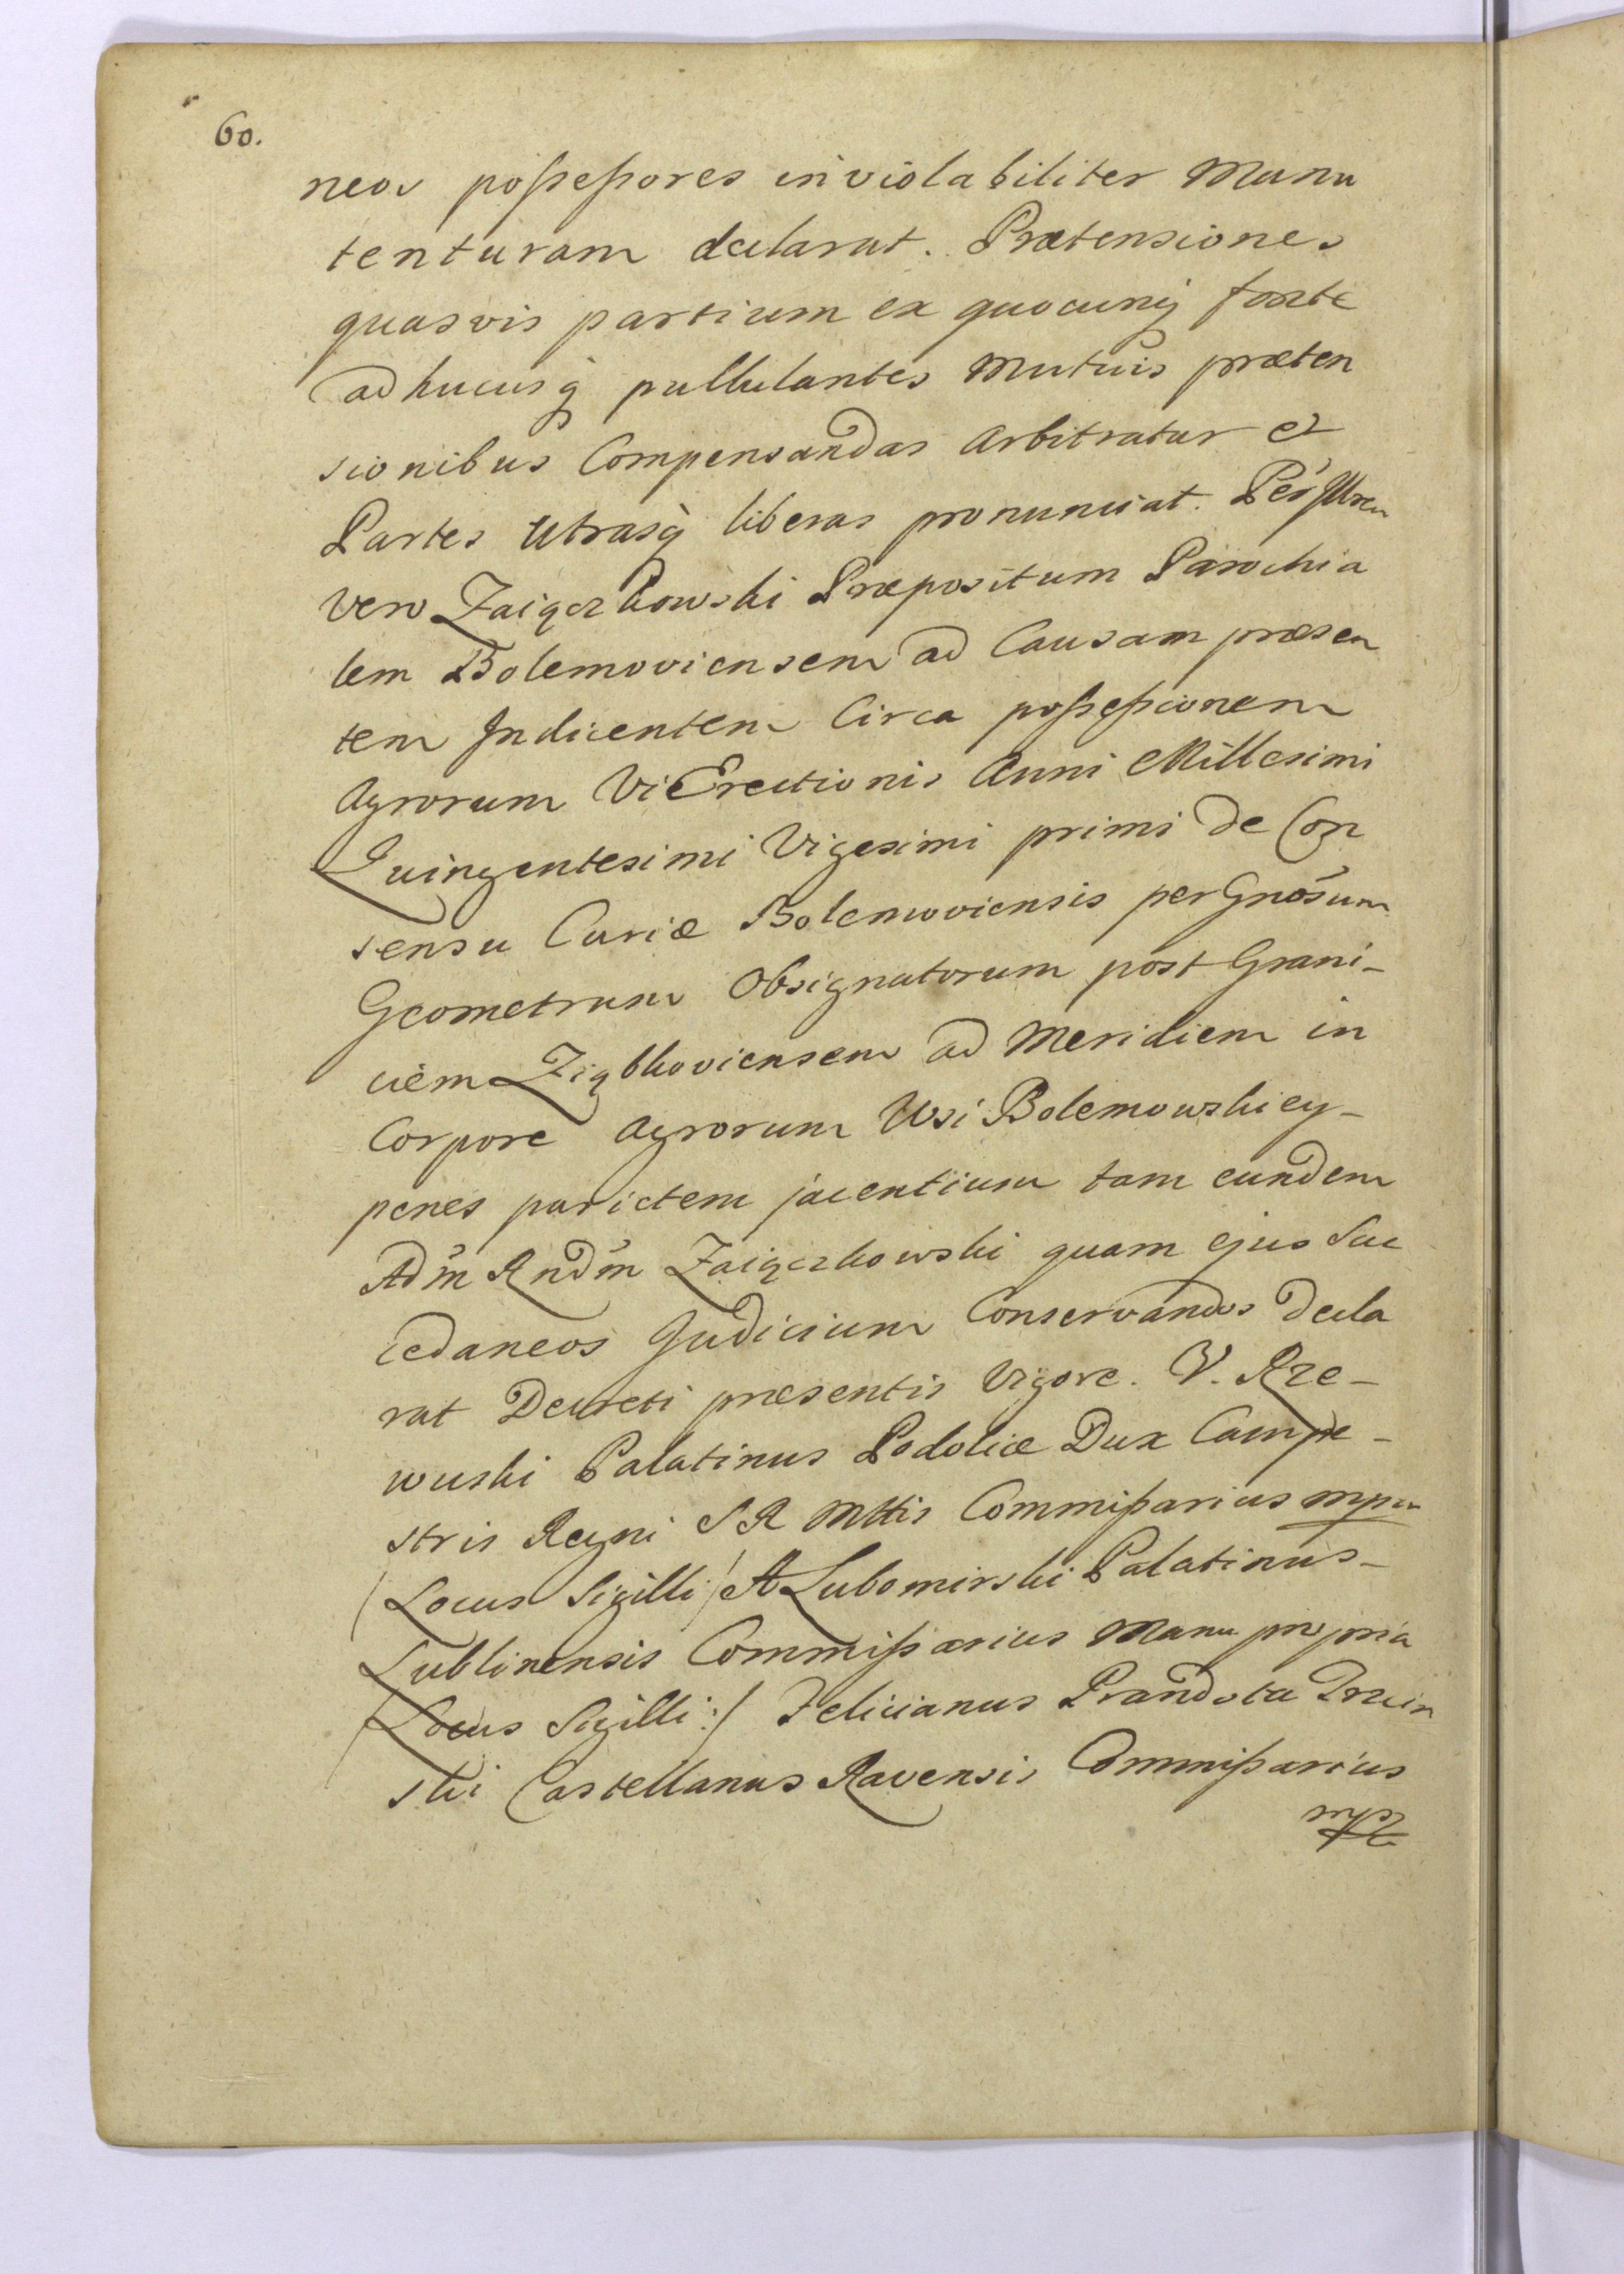 60.
neos possessores inviolabiliter Manu
tenturam declarat. Prætensiones
quasvis partium ex quocunq fonte
adhucusq pullulantes Mutuis præten
sionibus Compensandas Arbitratur et
Partes Utrasq liberas pronunciat.
Vero Zaiączkowski Præpositum Parochia
lem Bolemoviensem ad Causam præsen
tem Indicentem Circa possessionem
Agrorum Vi Erectionis Anni Millesimi
Quingentesimi Vigesimi primi de Con
sensu Curiæ Bolemoviensis per Gnosum
Geometram Obsignatorum post Grani-
ciem Ziąbkoviensem ad Meridiem in
Corpore Agrorum Wsi Bolemowskiey-
penes parietem jacentium tam eundem
Adm Rndm Zaiączkowski quam ejus Suc
cedaneos Judicium Conservandos decla
rat Decreti præsentis Vigore. W. Rze-
wuski Palatinus Podoliæ Dux Campe-
stris Regni S R Mttis Commissarius mpa
(Locus Sigilli:/ A Lubomirski Palatinus-
Lublinensis Commissarius Manu propria
(Locus Sigilli:/ Felicianus Prandota Trzciń
ski Castellanus Ravensis Commissarius
mpp